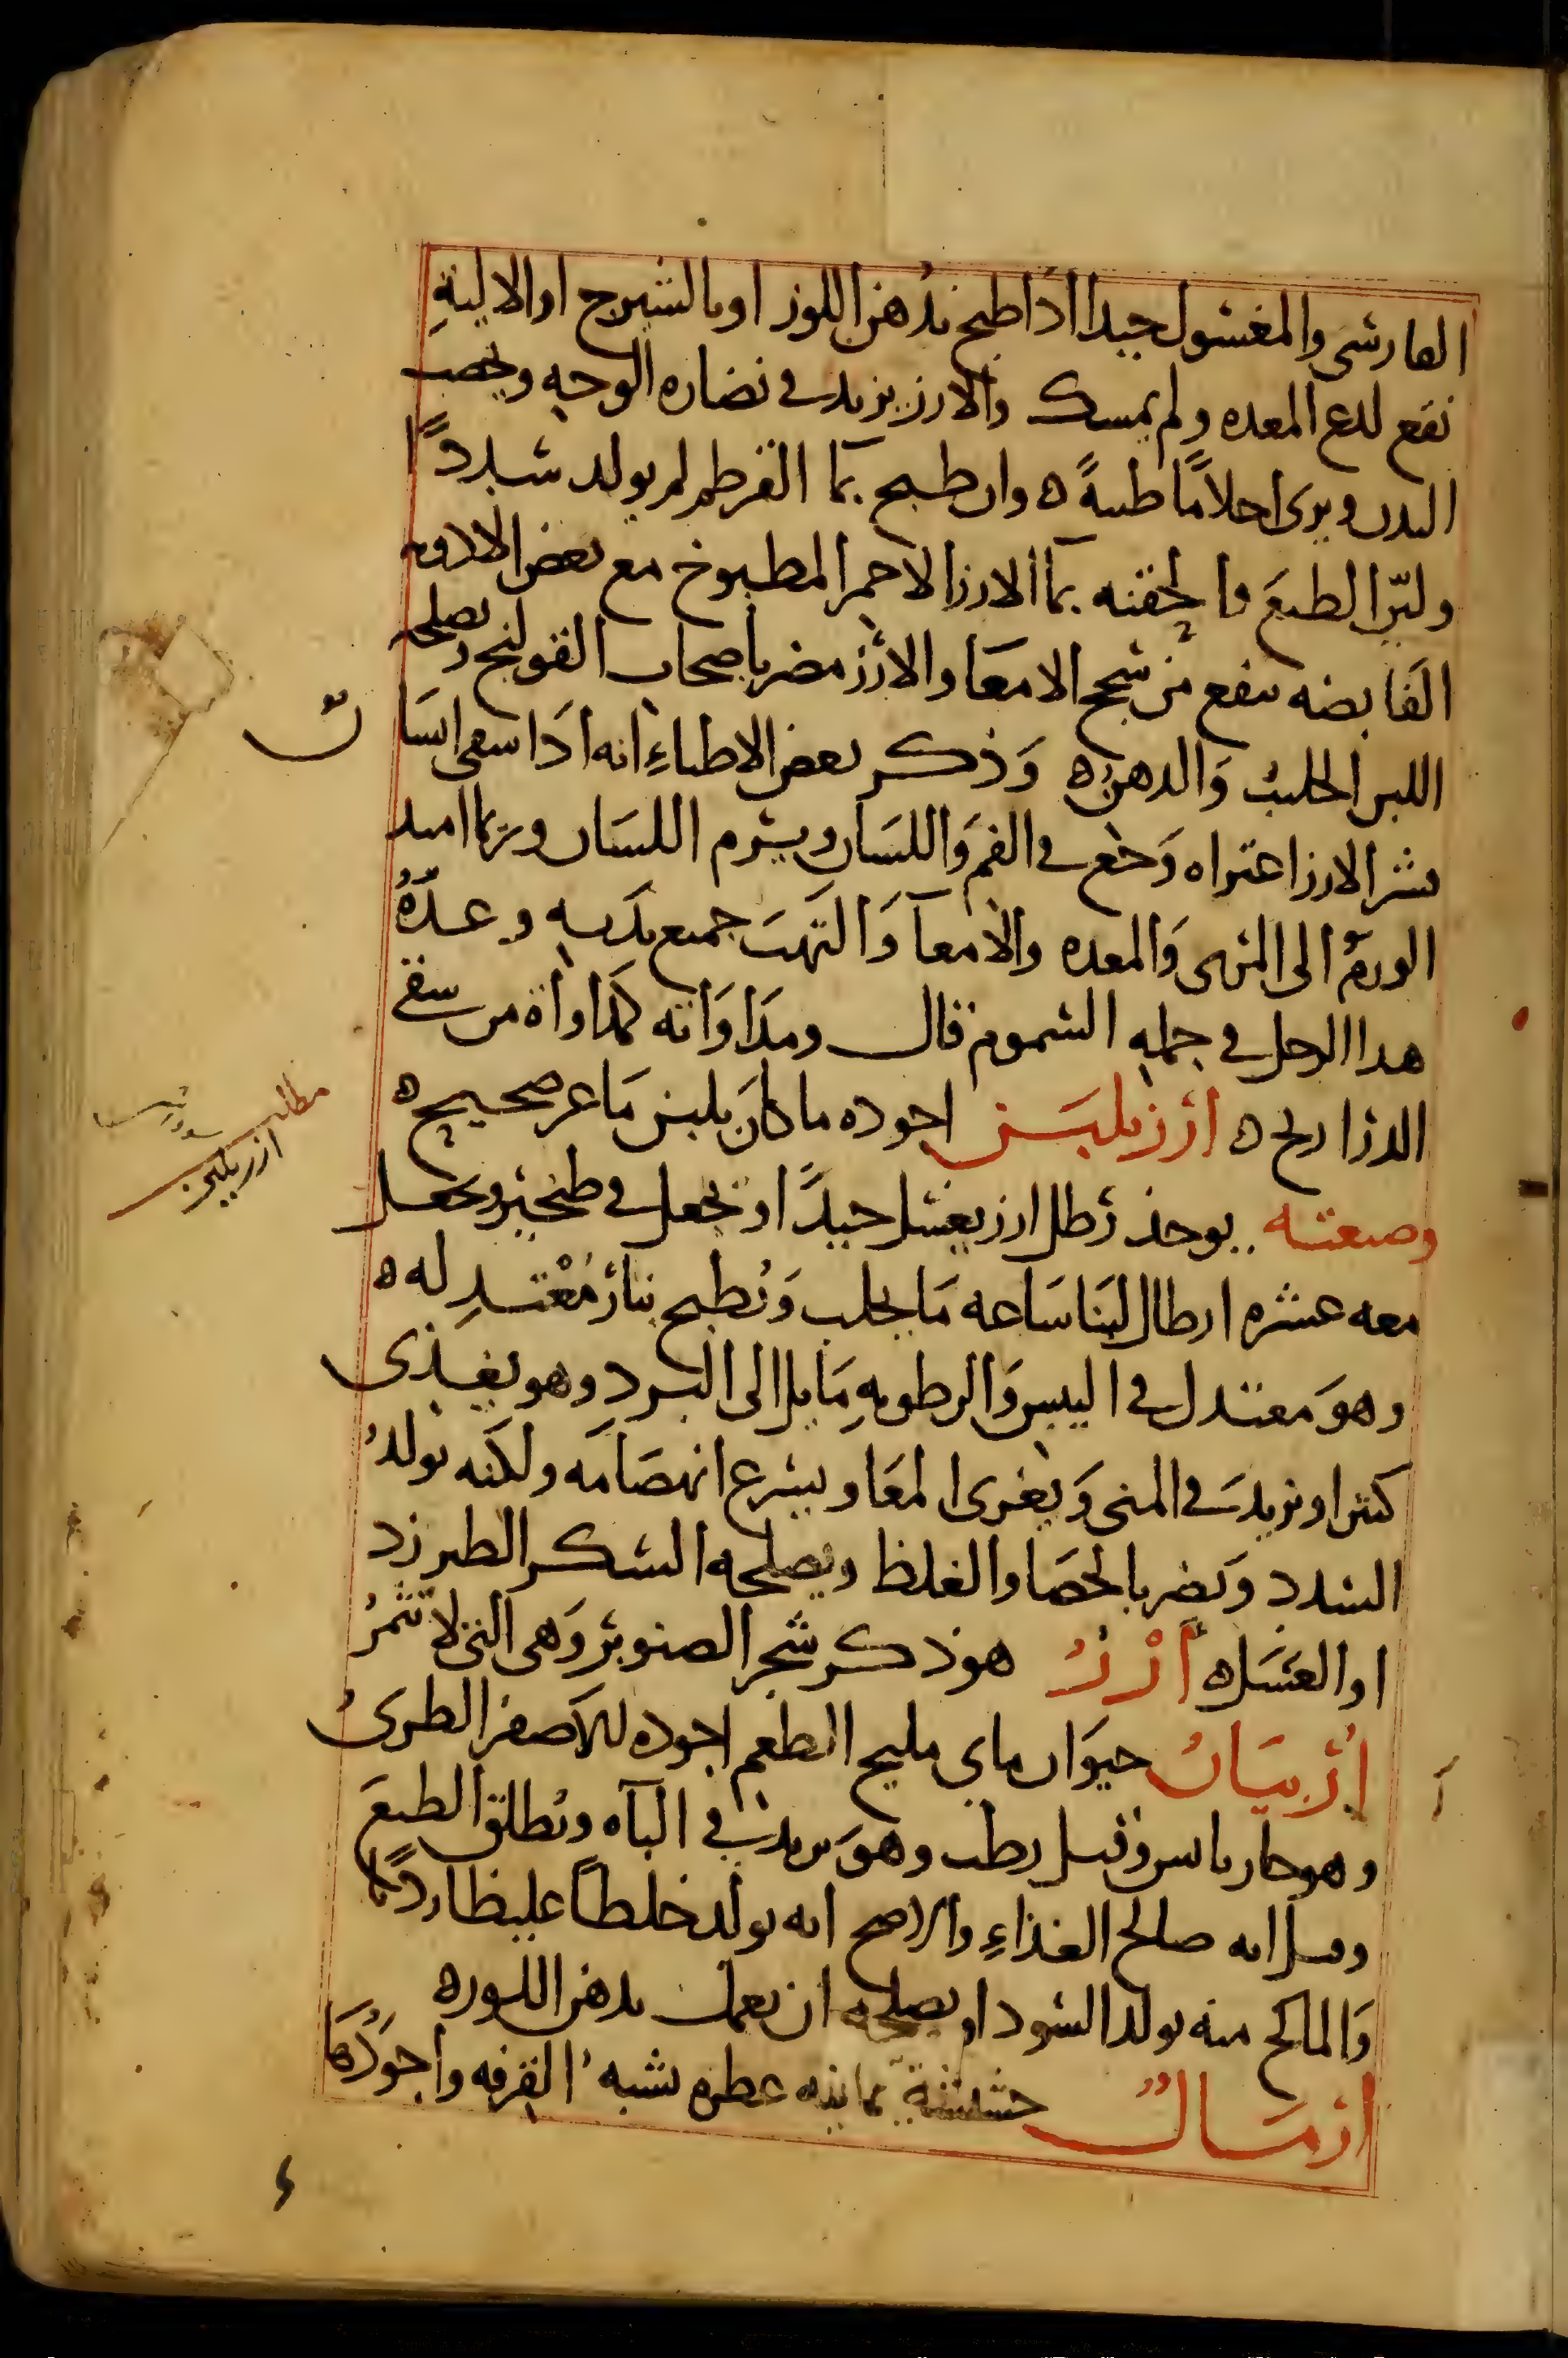 الفارسى والمغسول جيدا اذا طبخ بدهن اللوز او بالشيرج او الاليةِ
نفع لدع المعده ولم يمسك والارز يزيد فى نضاره الوجه ويخصب
البدن ويرى احلامًا طيبةً ه وان طبخ بما القرطم لم يولد سددًا
وليّن الطبعَ والحقنه بما الارز الاحمر المطبوخ مع بعض الادويه
القابضه ينفع من سحج الامعَا والارُز مضر باصحاب القولنج ويصلحه
اللبن الحليب وَالدهن ه وَذكر بعض الاطباءِ انه اذَا سقى انسَان
قشر الارز اعتراه وَجع فى الفم وَاللسَان ويتورم اللسَان وربما امتد
الورمُ الى المرى وَالمعده والامعآ وَالتهبَ جميع بدَنه وعدّهُ
هذا الرجل فى جمله السموم قال ومدَاوَاته كمدَاواة من سقى
الذراريح ه ارُز بلبَن اجوده ما كانَ بلبن مَاعز صحيح ه
وصنعته يوخذ رَطل ارز يغسل جيدًا ويجعل فى طنجير ويجعل
معه عشره ارطال لبنا سَاعه مَا يحلب وَيُطبخ بنار مُعْتدِله ه
وهوَ معتدل فى اليبس وَالرطوبهِ مَايل الى البرد وهو يغذى
كثيرا ويزيد فى المنى وَيغرى المعَا ويسرع انهضَامَه ولكنه يولدُ
السدد وَيضر بالحصَا والغلظ ويصلحه السكر الطبرزد
او العسَل ه أرْزُ هو ذكر شجر الصنوبر وَهى التى لا تثمرُ
اُرْبيَانُ حيوَان ماى مليح الطعم اجوده الاصفر الطرىُ
وهو حار يابس وقيل رطب وهوَ يزيد فى البآه ويُطلق الطبعَ
وقيل انه صالح الغذاءِ والاصح انه يولد خلطاً غليظا رديًا
وَالمالح منه يولد السودا ويصلحه ان يعمل بدهن اللوز ه
ارمَاك حشيشة يمانيه عطره تشبهُ القرفه واجوَدُهَا
مطلب
ارز بلبن